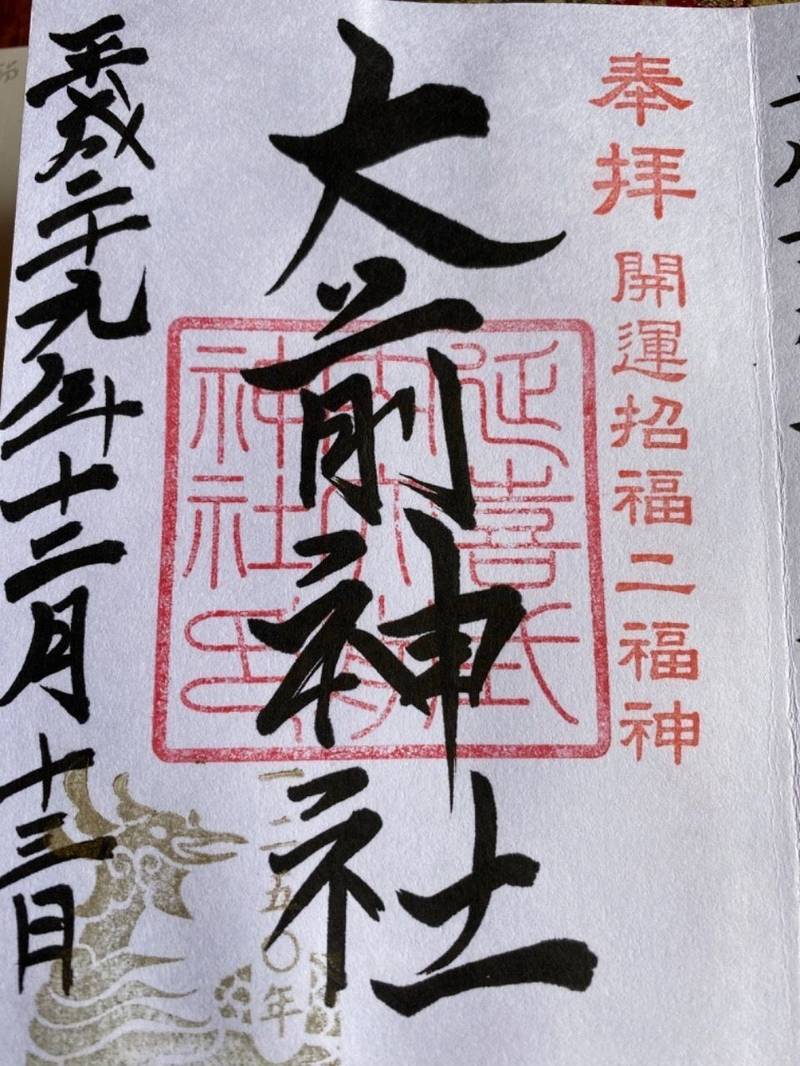 奉拝 開運招福二福神
大前神社
延喜式
内大前
神社印
平成二十九年十二月十三日
一二五〇年